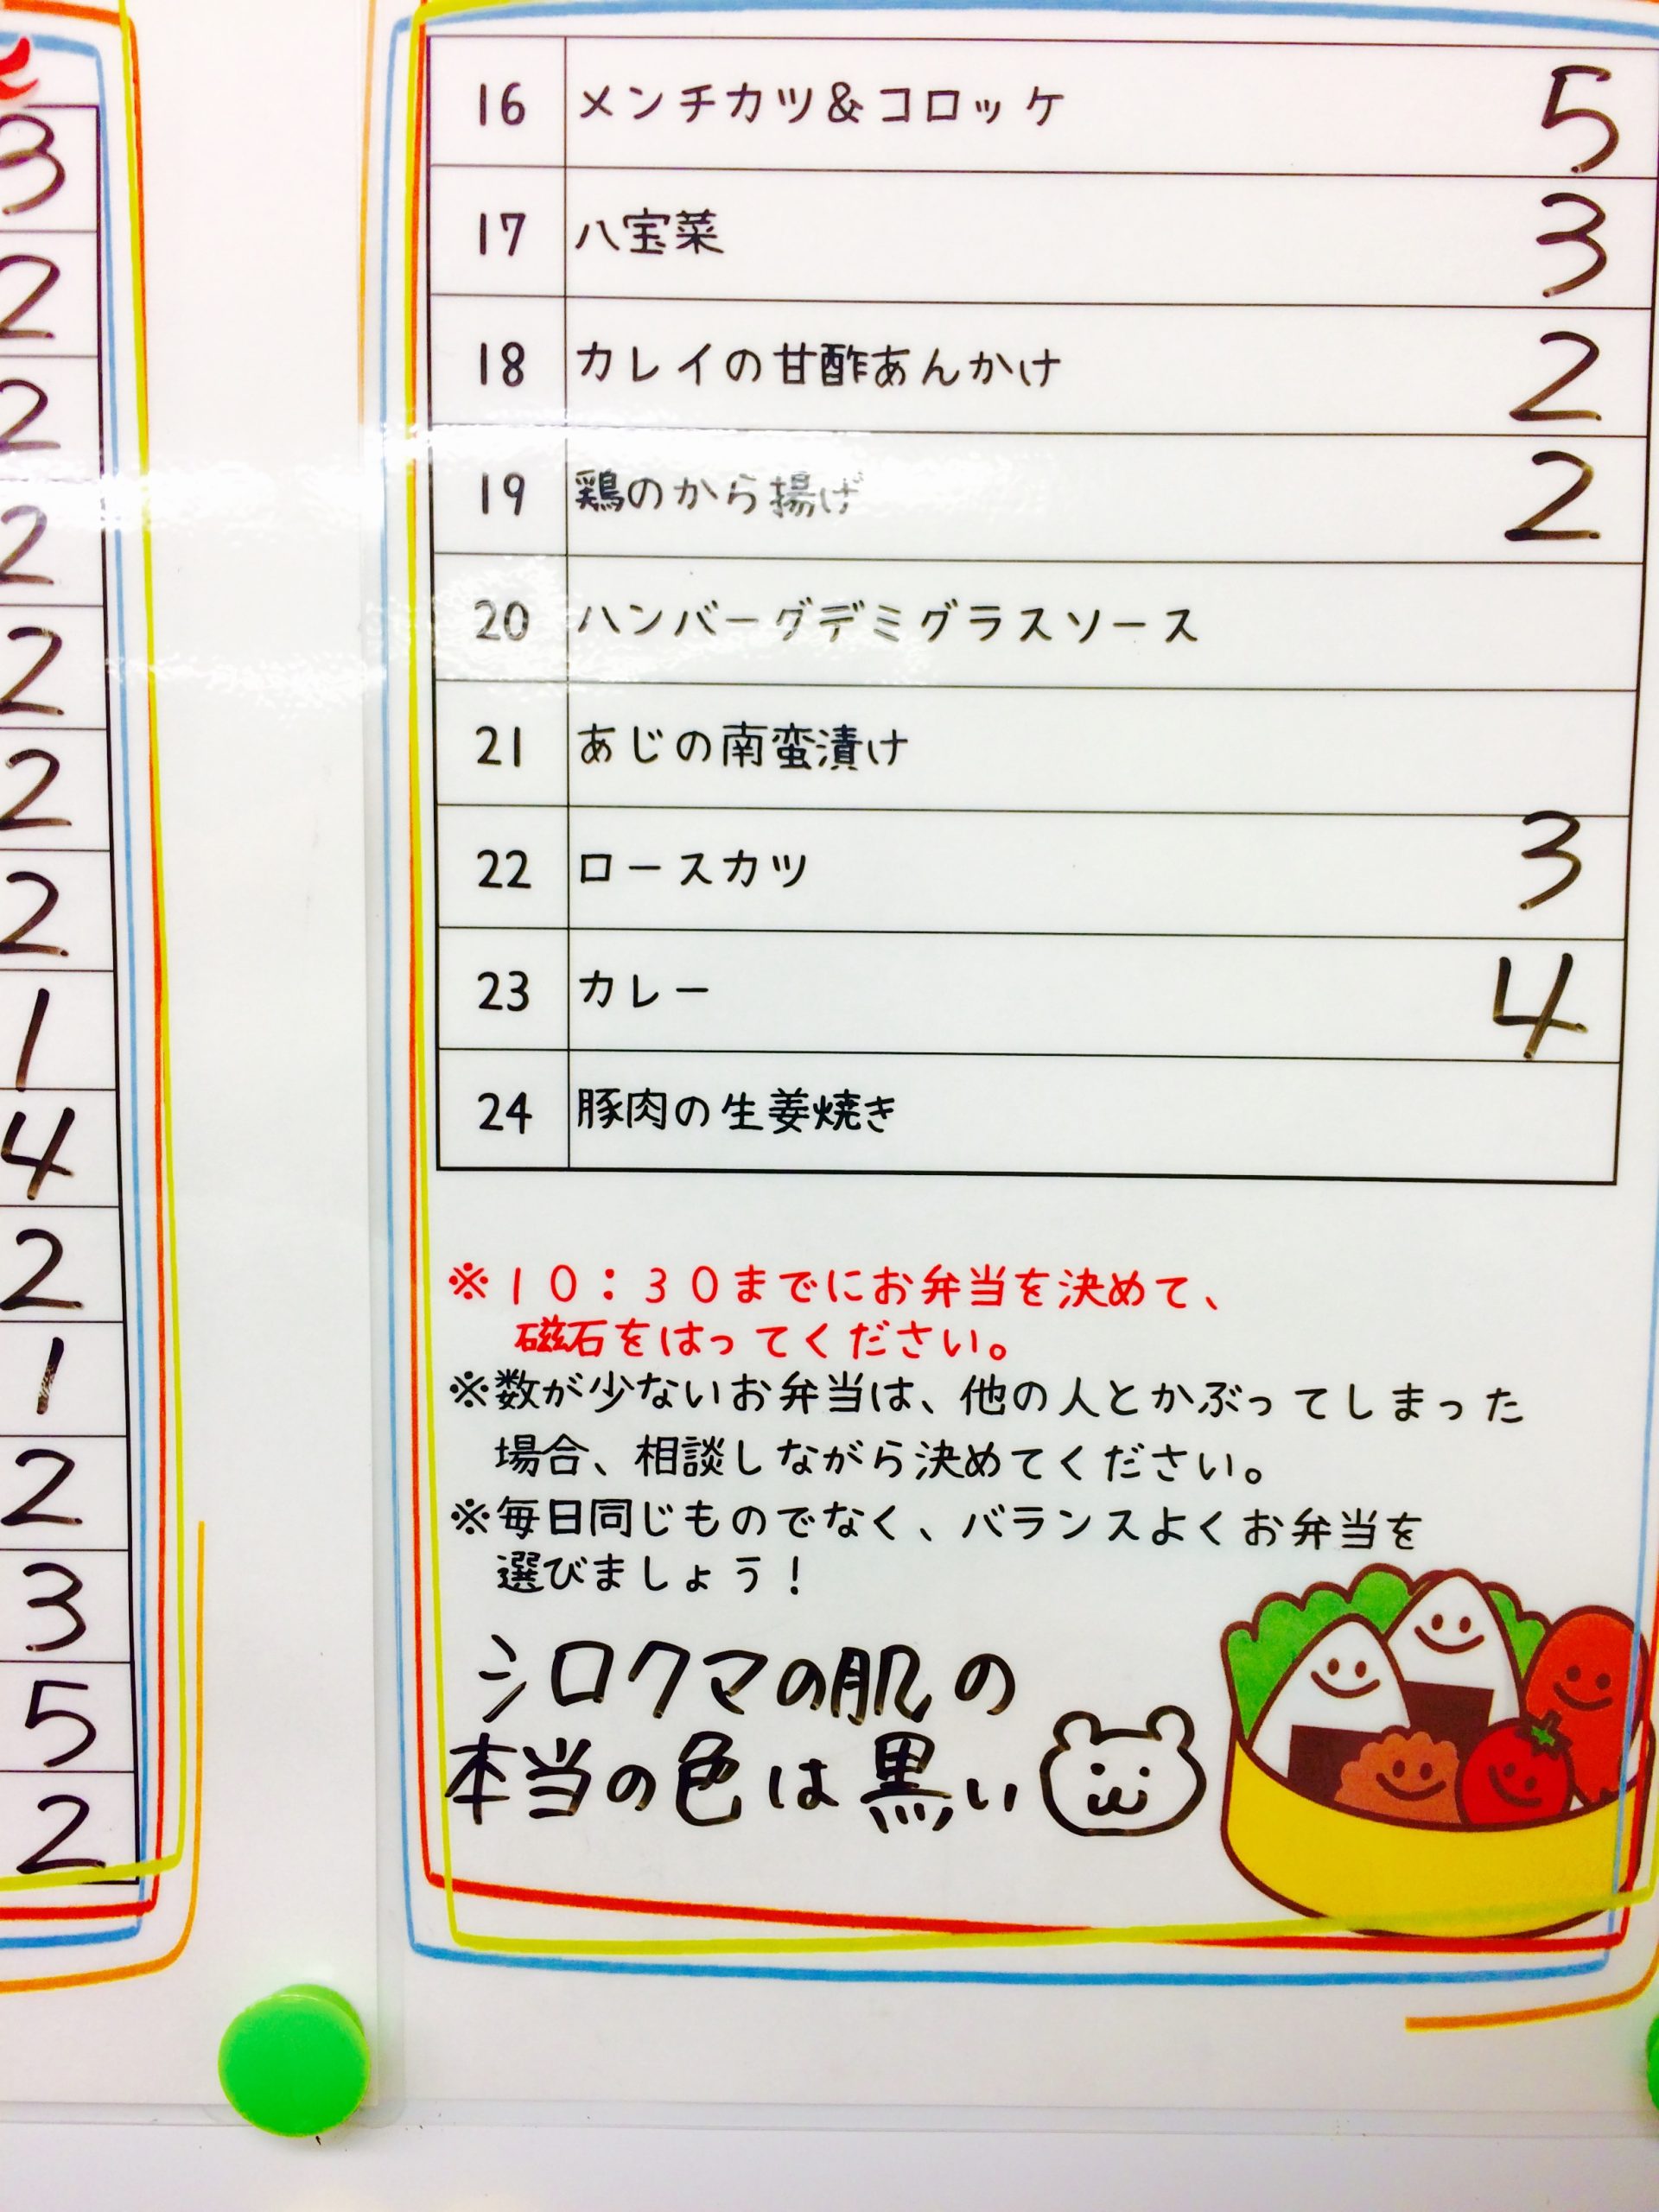 3
2
2
2
2
2
2
1
4
2
1
2
3
5
2
16 メンチカツ&コロッケ 5
17 八宝菜 3
18 カレイの甘酢あんかけ 2
19 鶏のから揚げ 2
20 ハンバーグデミグラスソース
21 あじの南蛮漬け
22 ロースカツ 3
23 カレー 4
24 豚肉の生姜焼き
※10：30までにお弁当を決めて、
磁石をはってください。
※数が少ないお弁当は、他の人とかぶってしまった
場合、相談しながら決めてください。
※毎日同じものでなく、バランスよくお弁当を
選びましょう！
シロクマの肌の
本当の色は黒い